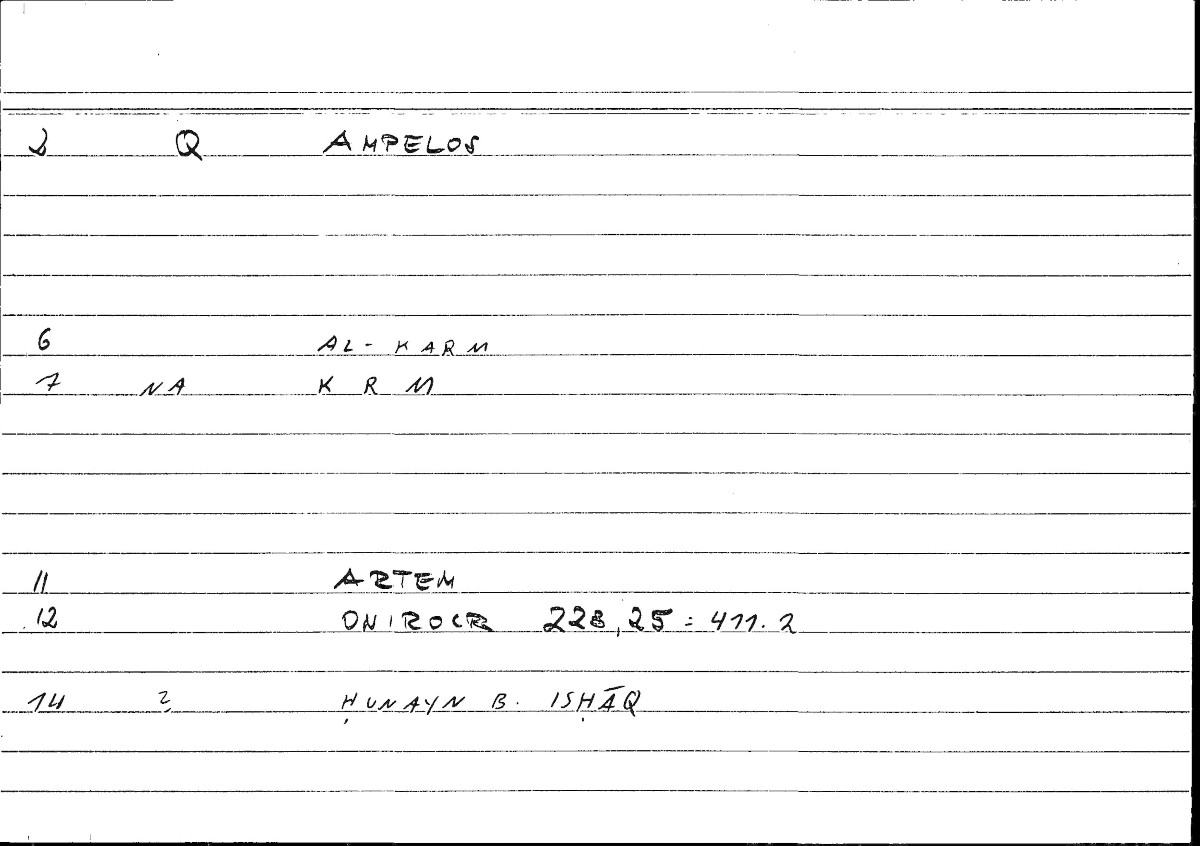 2 Q AMPELOS
6 AL-KARM
7 NA KRM
11 ARTEM
12 ONIROCR 228,25 = 411.2
14 2 ḤUNAYN B. ISḤĀQ